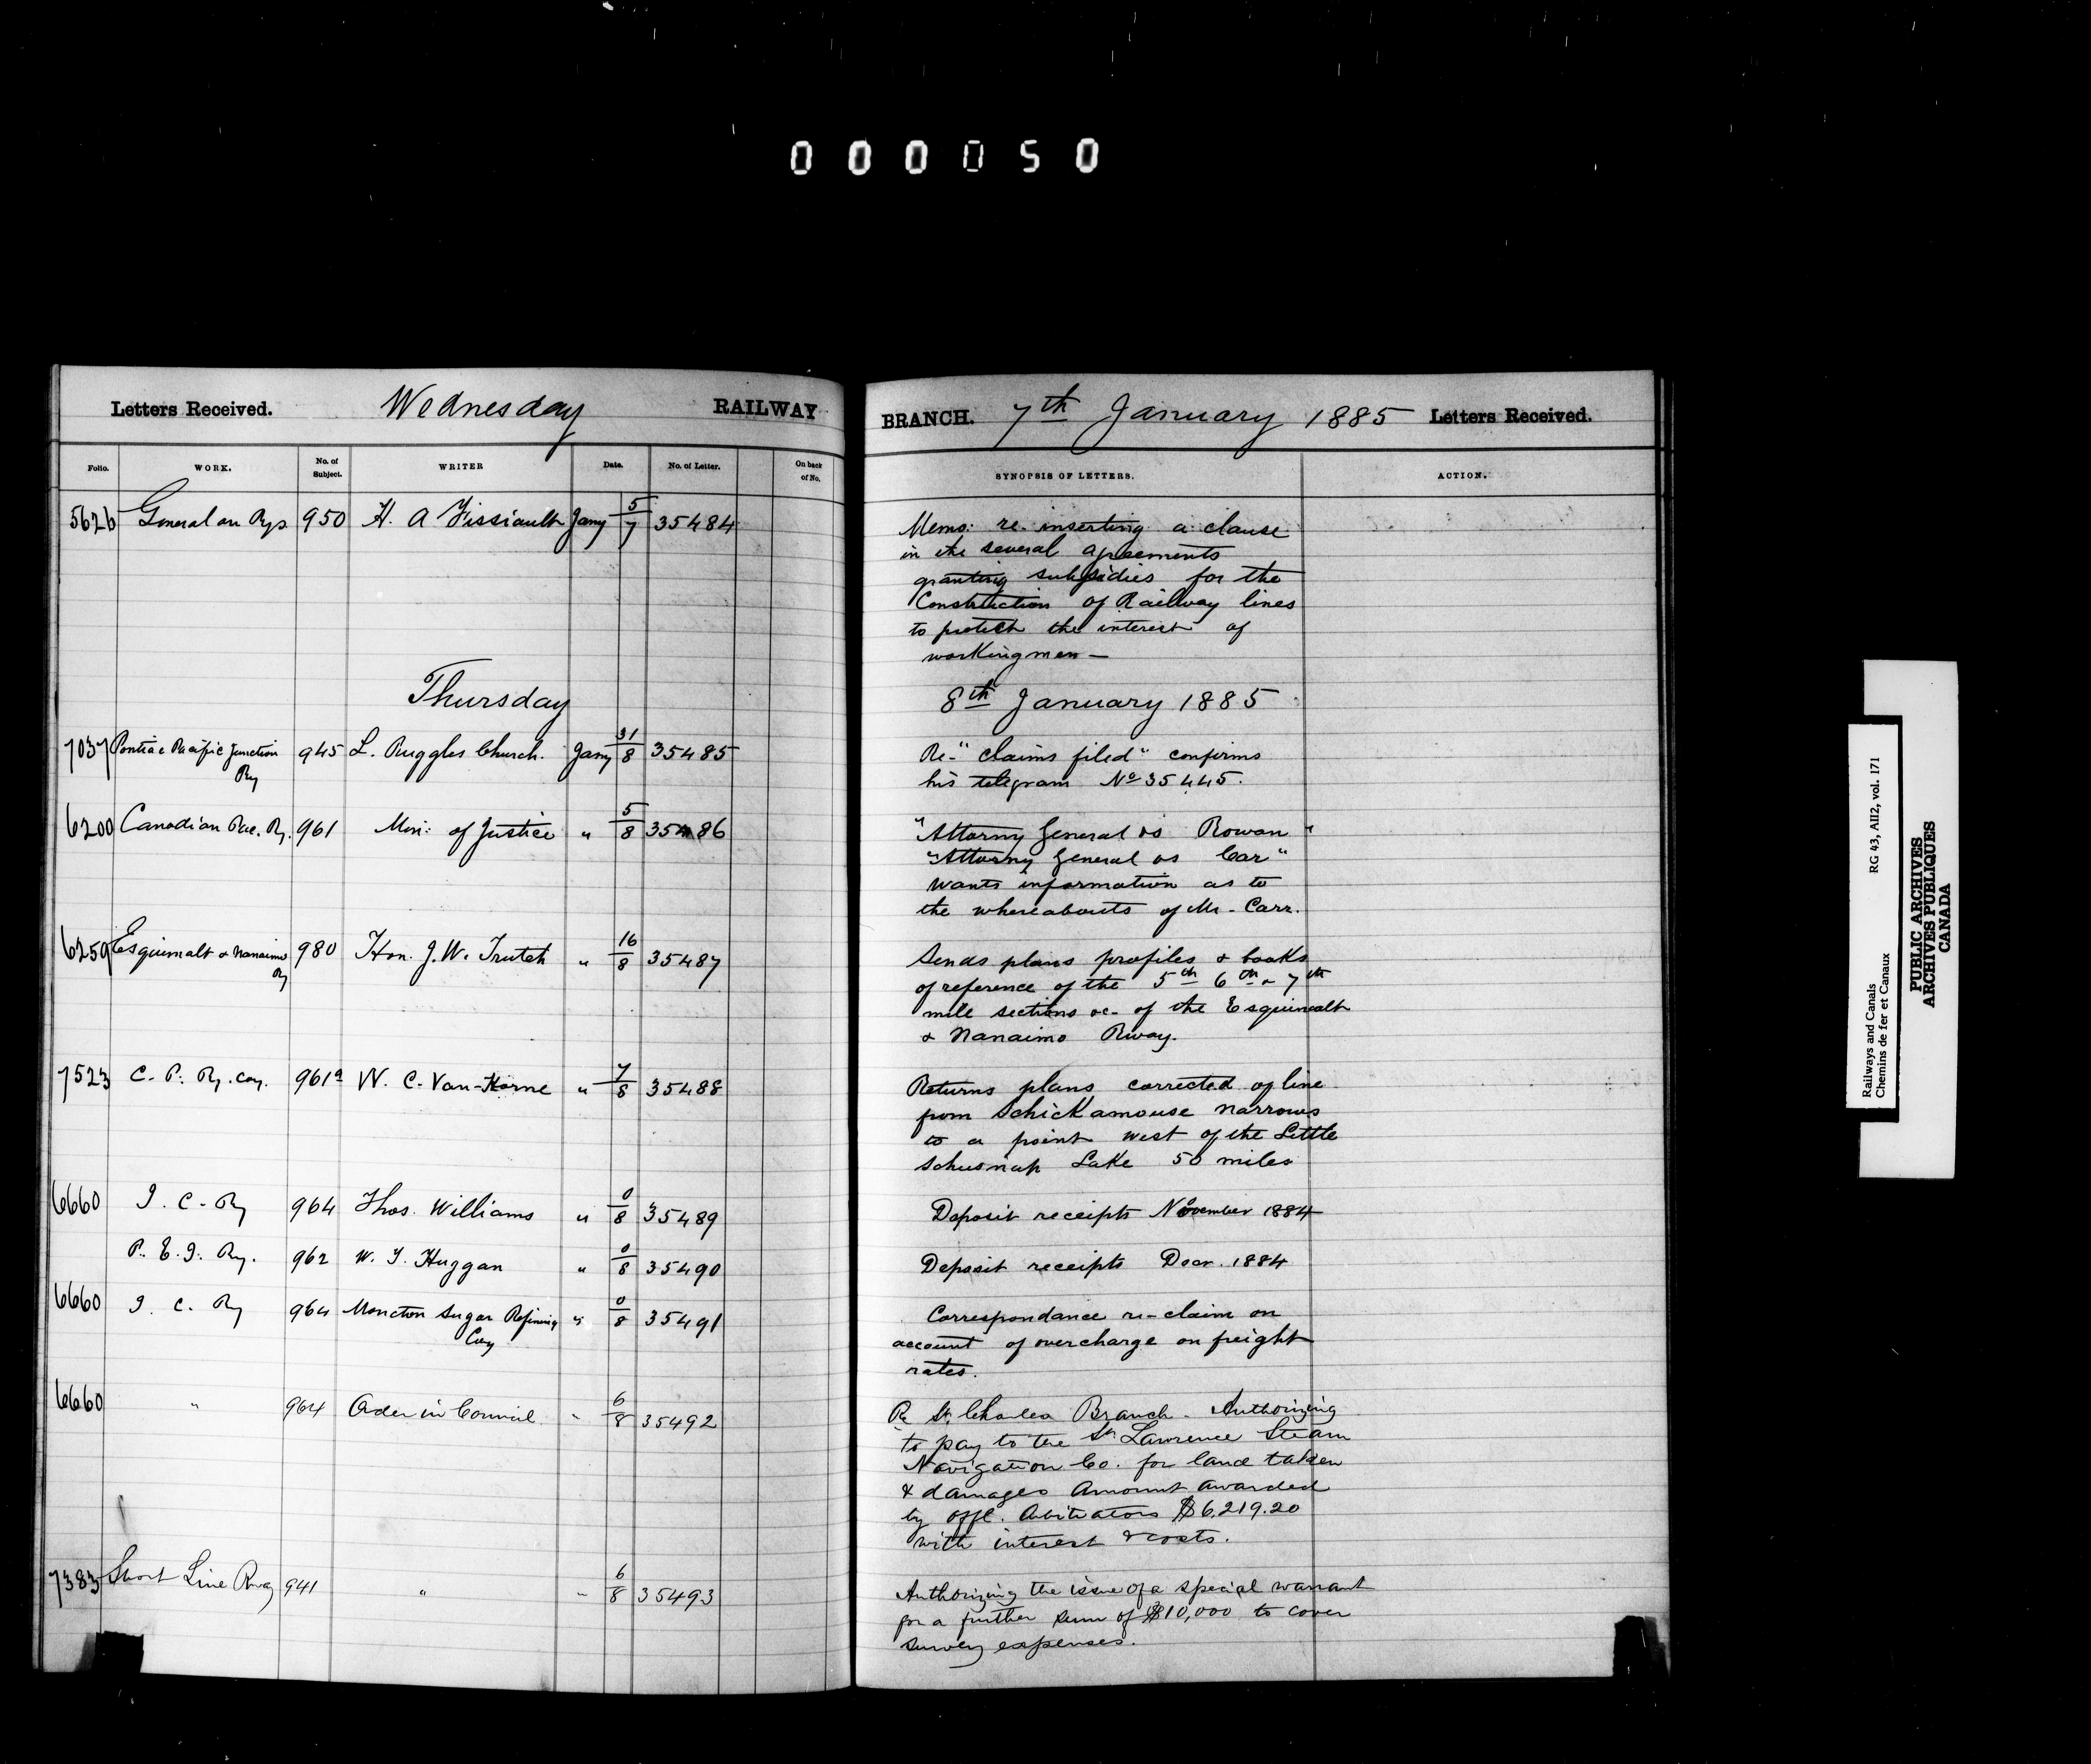 000050
Letters Received. Wednesday RAILWAY BRANCH. 7th January 1885 Letters Received.
Folio. WORK. No. of Subject. WRITER Date. No. of Letter. On back of No. SYNOPSIS OF LETTERS. ACTION.
5626 General on Rys 950 H. A Fissiault Jany 5/7 35484
Memo: re inserting a clause
in the several agreements
granting subsidies for the
Construction of Railway lines
to protect the interest of
workingmen —
Thursday 8th January 1885
7037 Pontiac Pacific Junction Ry 945 L. Ruggles Church. Jany 31/8 35485
Re "claims filed" confirms
his telegram No 35445.
6200 Canadian Pac. Ry. 961 Min: of Justice " 5/8 35486
"Attorny General vs Rowan"
"Attorny General vs Car"
Wants information as to
the whereabouts of Mr. Carr.
6259 Esquimalt & Nanaimo Ry 980 Hon. J. W. Trutch " 16/8 35487
Sends plans profiles & books
of reference of the 5th 6th & 7th
mile sections &c. of the Esquimalt
& Nanaimo Rway.
7523 C. P. Ry. Coy. 961a W. C. Van-Horne " 7/8 35488
Returns plans corrected of line
from Schickamouse narrows
to a point west of the Little
Schusnap Lake 50 miles
6660 I. C. Ry 964 Thos. Williams " 0/8 35489
Deposit receipts November 1884
P. E. I. Ry. 962 W. T. Huggan " 0/8 35490
Deposit receipts Decr. 1884
6660 I. C. Ry 964 Moncton Sugar Refining Coy " 0/8 35491
Correspondance re-claim on
account of overcharge on freight
rates.
6660 " 964 Order in Council " 6/8 35492
Re St. Charles Branch. Authorizing
to pay to the St. Lawrence Steam
Navigation Co. for land taken
& damages Amount awarded
by offl. Arbitrators $6,219.20
with interest & costs.
7383 Short Line Rway 941 " " 6/8 35493
Authorizing the issue of a special warrant
for a further sum of $10,000 to cover
survey expenses.
Railways and Canals RG 43, AII2, vol. 171
Chemins de fer et Canaux
PUBLIC ARCHIVES
ARCHIVES PUBLIQUES
CANADA